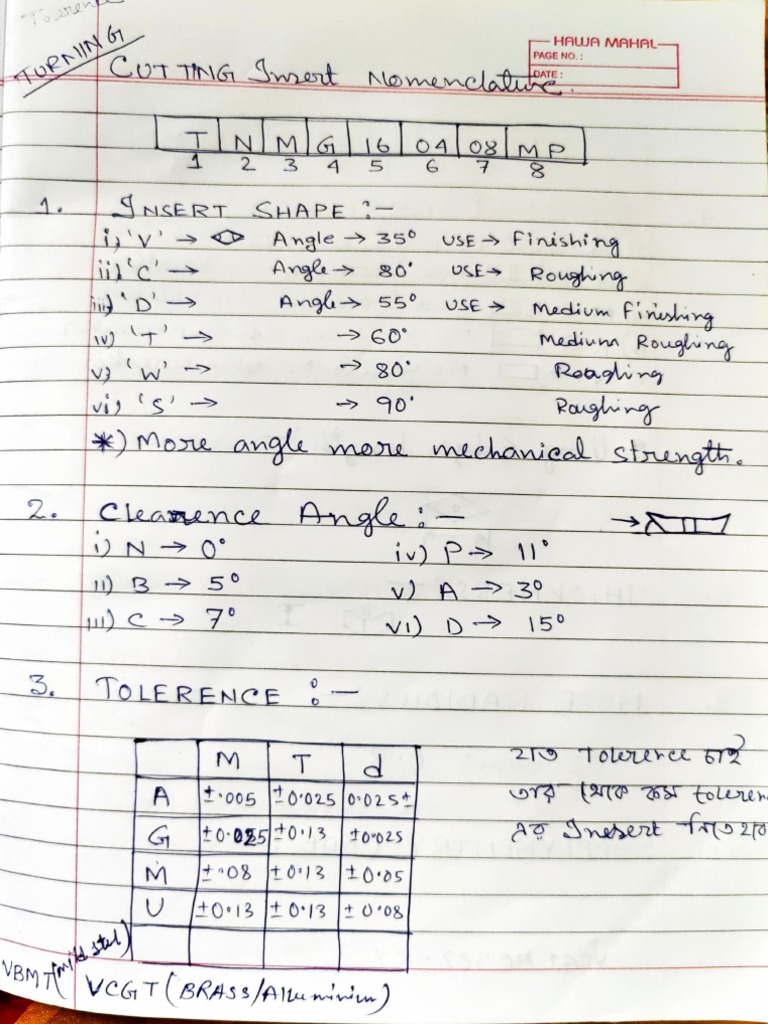 Tolerence
TURNING
HAWA MAHAL
PAGE NO. :
DATE :
CUTTING Insert Nomenclature.
T N M G 16 04 08 MP
1 2 3 4 5 6 7 8
1. INSERT SHAPE :-
i) 'V' → Angle → 35° USE → Finishing
ii) 'C' → Angle → 80° USE → Roughing
iii) 'D' → Angle → 55° USE → Medium Finishing
iv) 'T' → → 60° Medium Roughing
v) 'W' → → 80° Roaghing
vi) 'S' → → 90° Roughing
*) More angle more mechanical strength.
2. Clearence Angle :- →
i) N → 0° iv) P → 11°
ii) B → 5° v) A → 3°
iii) C → 7° vi) D → 15°
3. TOLERENCE :-
M T d
A ±.005 ±0.025 0.025±
G ±0.025 ±0.13 ±0.025
M ±.08 ±0.13 ±0.05
U ±0.13 ±0.13 ±0.08
যত Tolerence চাই
তার থেকে কম toleren
এর Inesert নিতে হবে
VBMT (mild steel)
VCGT (BRASS/Alluminium)